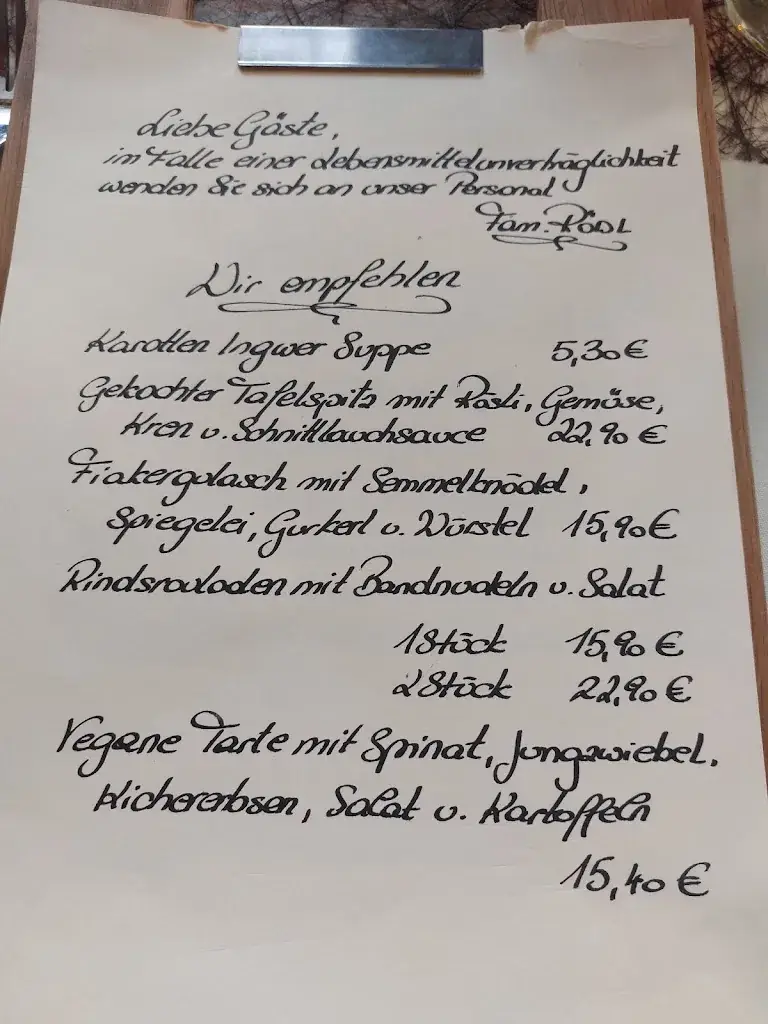 Liebe Gäste,
im Falle einer Lebensmittelunverträglichkeit
wenden Sie sich an unser Personal
Fam. Rödl
Wir empfehlen
Karotten Ingwer Suppe 5,30 €
Gekochter Tafelspitz mit Rösti, Gemüse,
Kren u. Schnittlauchsauce 22,90 €
Fiakergulasch mit Semmelknödel,
Spiegelei, Gurkerl u. Würstel 15,90 €
Rindsrouladen mit Bandnudeln u. Salat
1 Stück 15,90 €
2 Stück 22,90 €
Vegane Tarte mit Spinat, Jungzwiebel,
Kichererbsen, Salat u. Kartoffeln
15,40 €